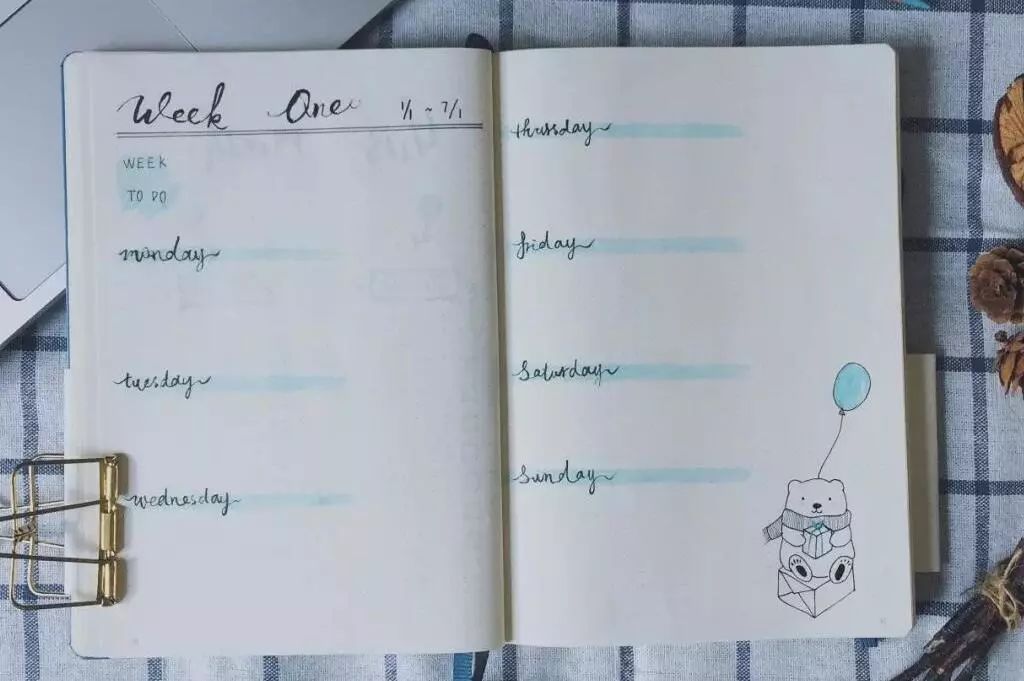 Week One 1/1 ~ 7/1
WEEK
TO DO
monday
tuesday
wednesday
thursday
friday
saturday
sunday